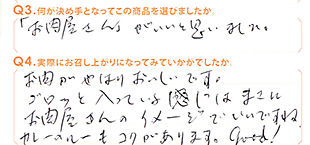 Q3.何が決め手となってこの商品を選びましたか。
「お肉屋さん」がいいと思いました。
Q4.実際にお召し上がりになってみていかがでしたか。
お肉がやはりおいしいです。
ゴロッと入っている感じはまさに
お肉屋さんのイメージでいいですね
カレールーもコクがあります。Good!